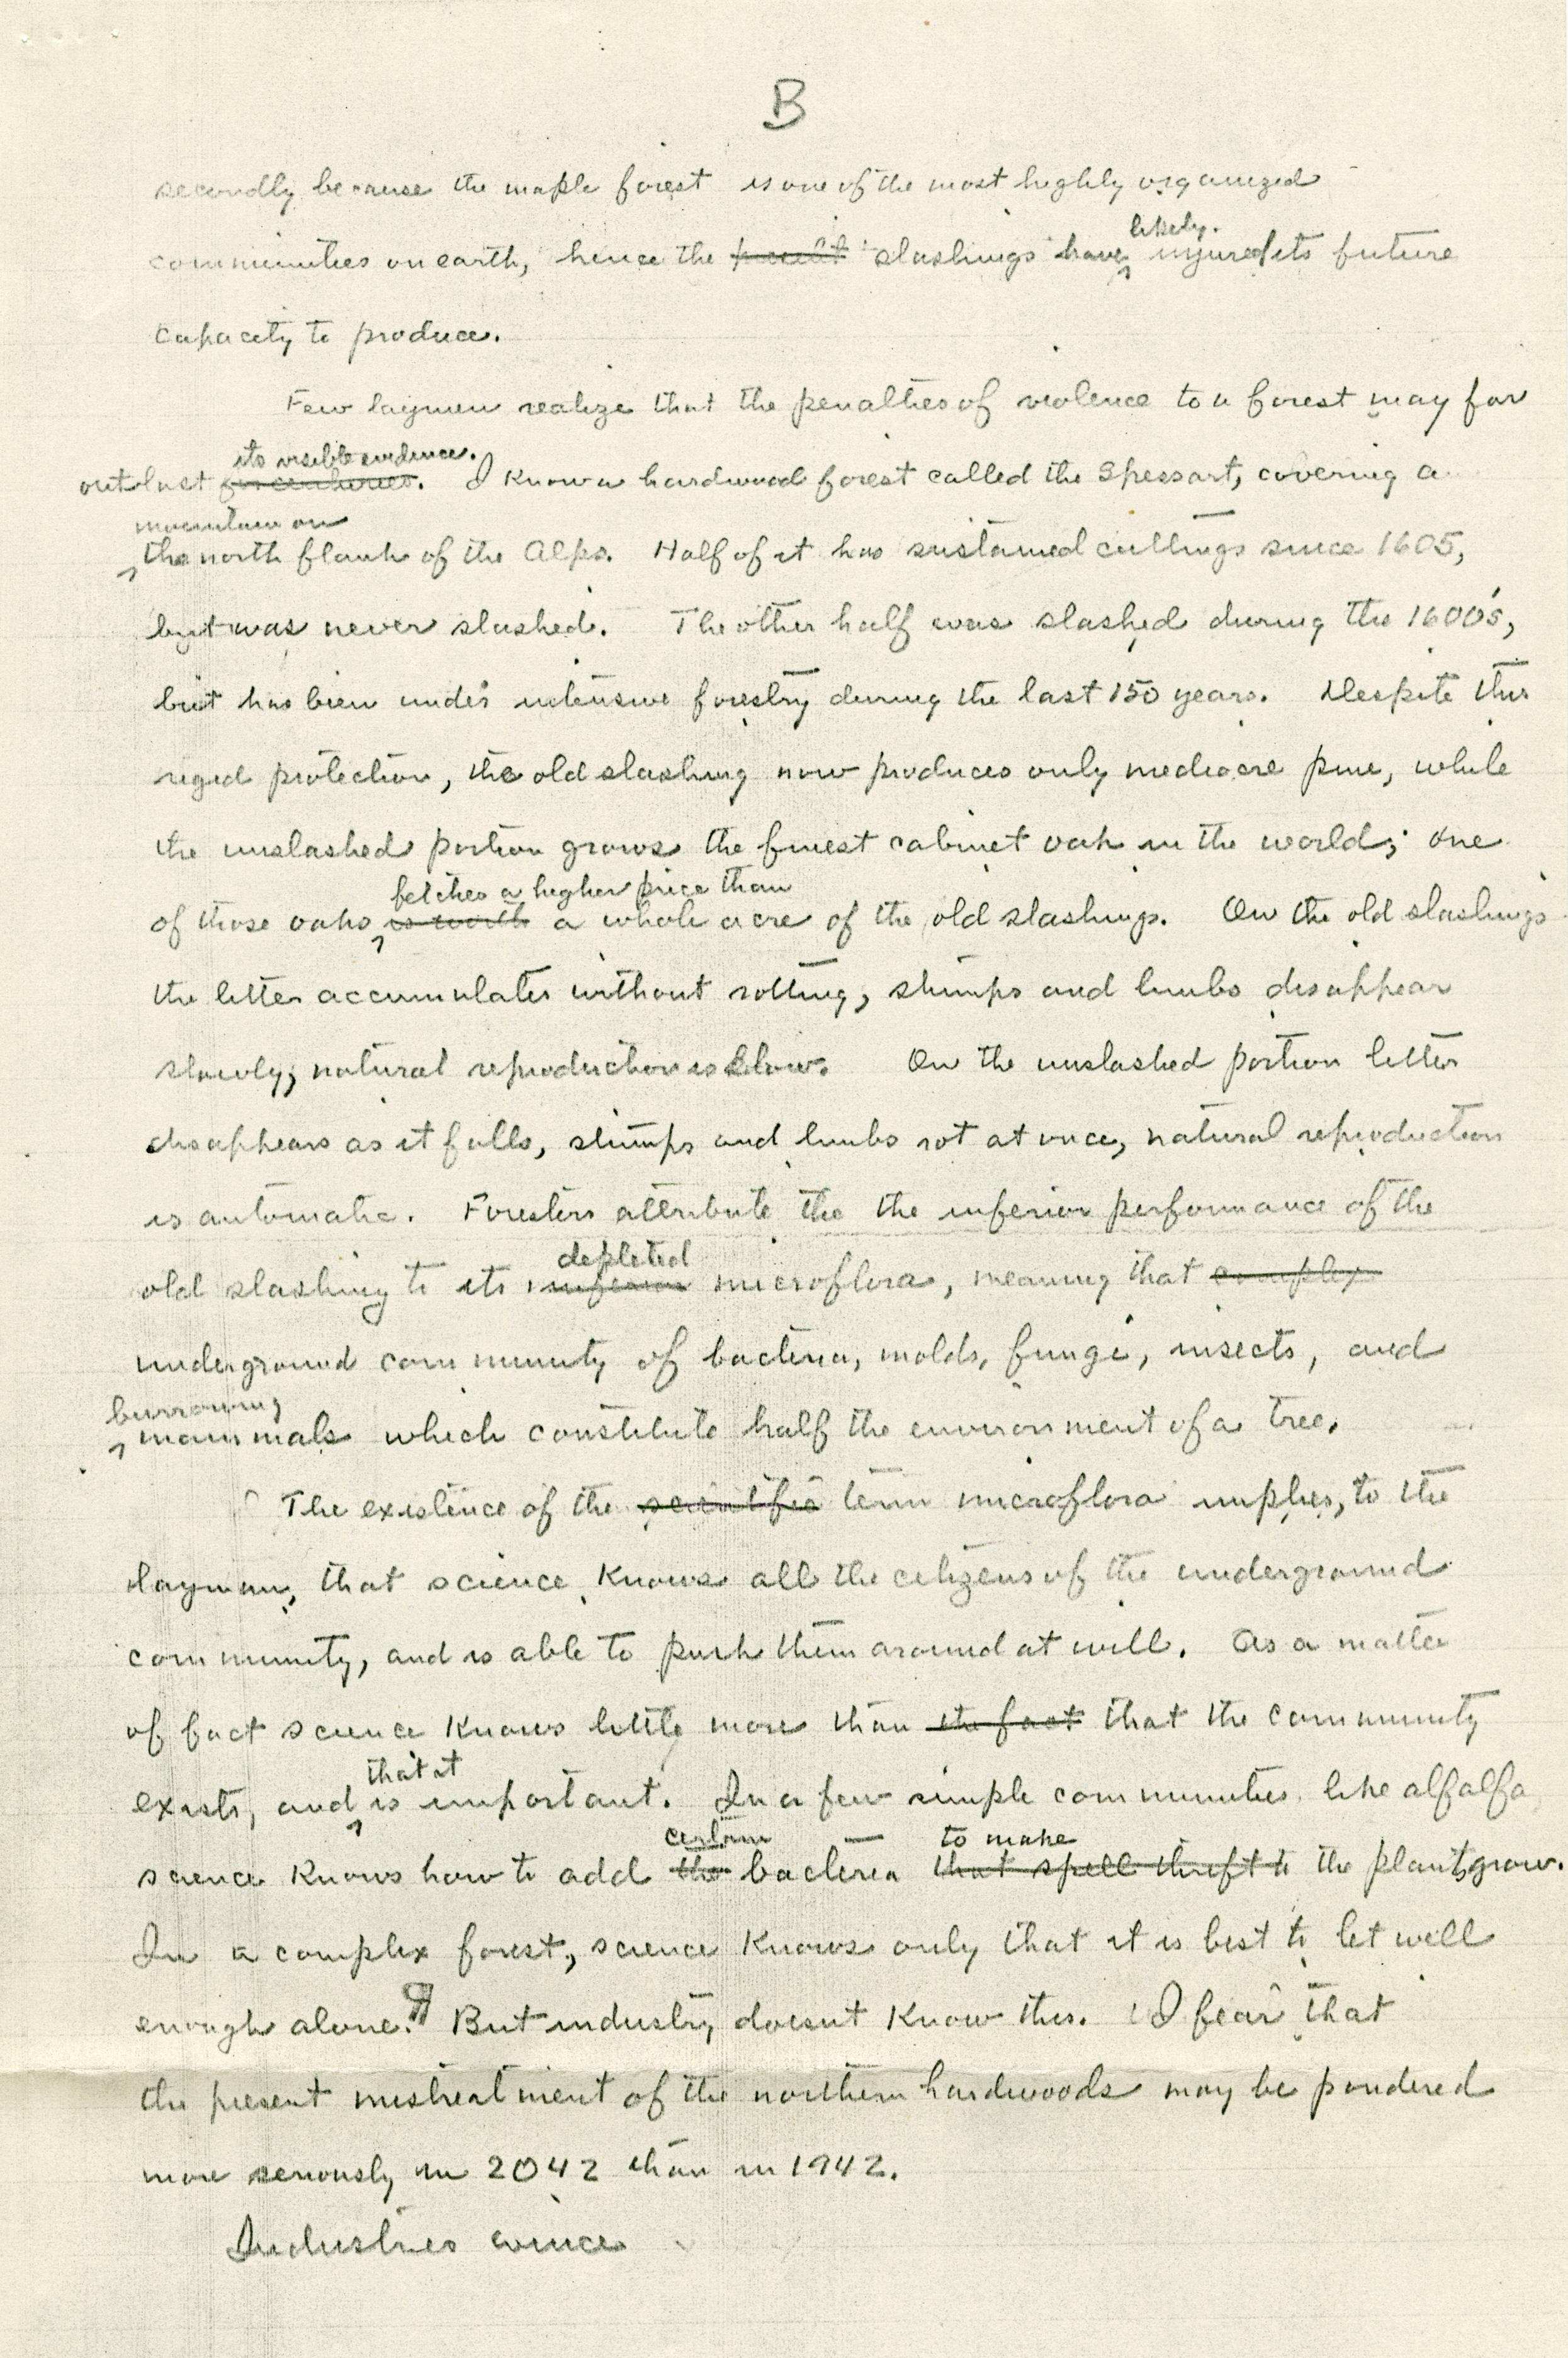 B
secondly because the maple forest is one of the most highly organized
likely
communities on earth, hence the "slashings" have injured its future
capacity to produce.
Few laymen realize that the penalties of violence to a forest may far
its visible evidence.
outlast for centuries. I know a hardwood forest called the Spessart, covering a
mountain on
the north flank of the Alps. Half of it has sustained cuttings since 1605,
but was never slashed. The other half was slashed during the 1600's,
but has been under intensive forestry during the last 150 years. Despite this
rigid protection, the old slashing now produces only mediocre pine, while
the unslashed portion grows the finest cabinet oak in the world; one
fetches a higher price than
of those oaks is worth a whole acre of the old slashings. On the old slashings
the litter accumulates without rotting, stumps and limbs disappear
slowly, natural reproduction is slow. On the unslashed portion litter
disappears as it falls, stumps and limbs rot at once, natural reproduction
is automatic. Foresters attribute the the inferior performance of the
depleted
old slashing to its inferior microflora, meaning that complex
underground community of bacteria, molds, fungi, insects, and
burrowing
mammals which constitute half the environment of a tree.
The existence of the scientific term microflora implies, to the
layman, that science knows all the citizens of the underground
community, and is able to push them around at will. As a matter
of fact science knows little more than the fact that the community
that it
exists, and is important. In a few simple communities like alfalfa
certain to make
science knows how to add the bacteria that spell thrift to the plants grow.
In a complex forest, science knows only that it is best to let well
enough alone. ¶ But industry doesnt know this. I fear that
the present mistreatment of the northern hardwoods may be pondered
more seriously in 2042 than in 1942.
Industries wince